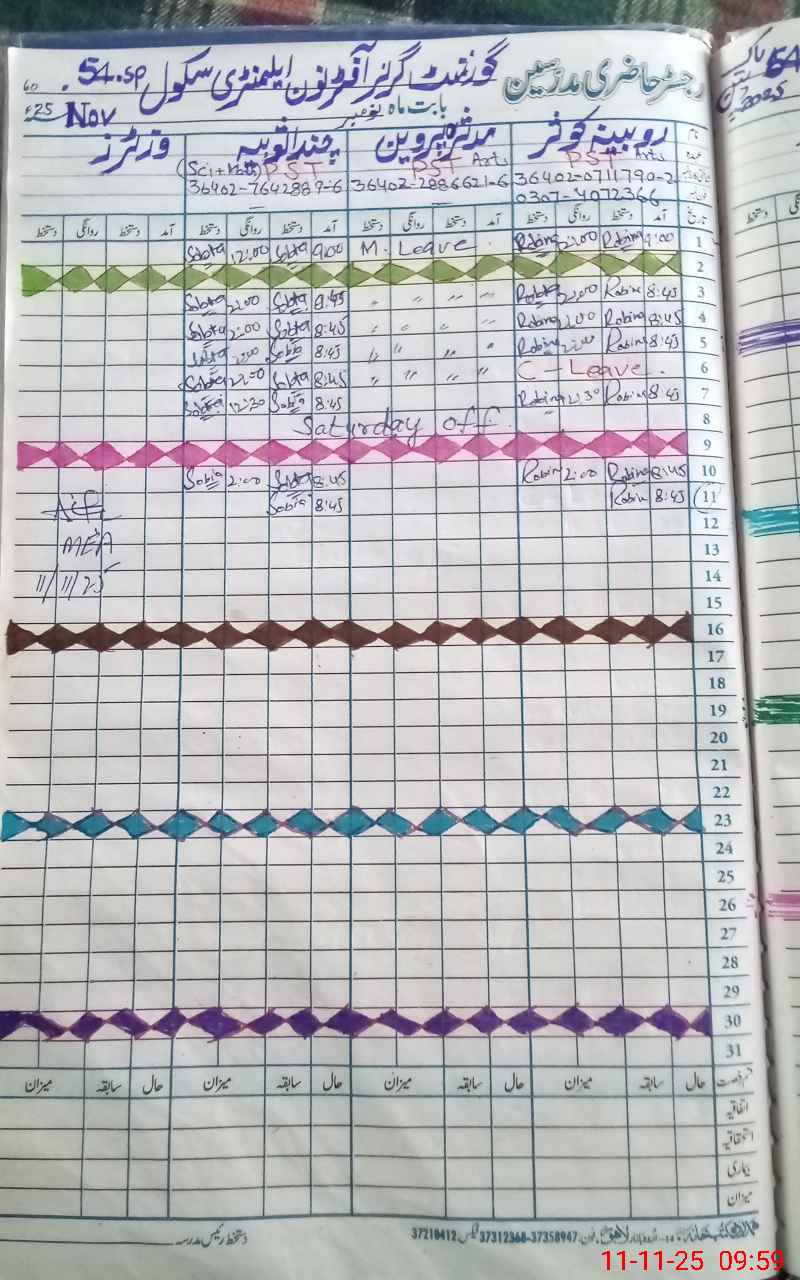 رجسٹر حاضری مدرسین گورنمنٹ گرلز آفٹر نون ایلیمنٹری سکول 54.SP
بابت ماہ نومبر Nov 25
روبینہ کوثر مدثرہ پروین چندا ثوبیہ وزٹرز
نام
PST Arts PST Arts PST (Sci+Math)
36402-0711790-2 36402-2886621-6 36402-7642889-6
0307-4072366
تاریخ آمد دستخط روانگی دستخط آمد دستخط روانگی دستخط آمد دستخط روانگی دستخط آمد دستخط روانگی دستخط
1 9:00 Robina 2:00 Robina M. Leave 9:00 Sobia 12:00 Sobia
2
3 8:45 Robina 2:00 Robina " " " " 8:45 Sobia 2:00 Sobia
4 8:45 Robina 2:00 Robina " " " " 8:45 Sobia 2:00 Sobia
5 8:45 Robina 2:00 Robina " " " " 8:45 Sobia 2:00 Sobia
6 C - Leave. " " " " 8:45 Sobia 2:00 Sobia
7 8:45 Robina 12:30 Robina 8:45 Sobia 12:30 Sobia
8 Saturday off.
9
10 8:45 Robina 2:00 Robina 8:45 Sobia 2:00 Sobia
11 8:45 Robina 8:45 Sobia
12
13 MEA
14 11/11/25
15
16
17
18
19
20
21
22
23
24
25
26
27
28
29
30
31
قسم رخصت حال سابقہ میزان حال سابقہ میزان حال سابقہ میزان حال سابقہ میزان
اتفاقیہ
استحقاقیہ
بیماری
میزان
لاہور فون 37312368-37358947 فیکس 37210412
دستخط رئیس مدرسہ
پاکپتن 54
2025
دستخط روانگی
11-11-25 09:59